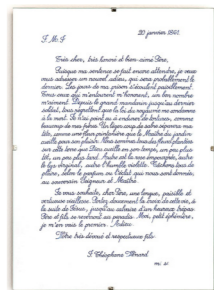 20 janvier 1861.
J. M. J.
Très cher, très honoré et bien-aimé Père,
Puisque ma sentence se fait encore attendre, je veux
vous adresser un nouvel adieu, qui sera probablement le
dernier. Les jours de ma prison s'écoulent paisiblement.
Tous ceux qui m'entourent m'honorent, un bon nombre
m'aiment. Depuis le grand mandarin jusqu'au dernier
soldat, tous regrettent que la loi du royaume me condamne
à la mort. Je n'ai point eu à endurer de tortures, comme
beaucoup de mes frères. Un léger coup de sabre séparera ma
tête, comme une fleur printanière que le Maître du jardin
cueille pour son plaisir. Nous sommes tous des fleurs plantées
sur cette terre que Dieu cueille en son temps, un peu plus
tôt, un peu plus tard. Autre est la rose empourprée, autre
le lys virginal, autre l'humble violette. Tâchons tous de
plaire, selon le parfum ou l'éclat qui nous sont donnés,
au souverain Seigneur et Maître.
Je vous souhaite, cher Père, une longue, paisible et
vertueuse vieillesse. Portez doucement la croix de cette vie, à
la suite de Jésus, jusqu'au calvaire d'un heureux trépas.
Père et fils se reverront au paradis. Moi, petit éphémère,
je m'en vais le premier. Adieu.
Votre très dévoué et respectueux fils.
J. Théophane Vénard
m. s.